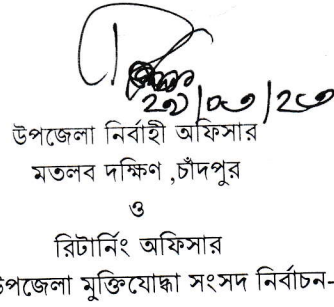 উপজেলা নির্বাহী অফিসার
মতলব দক্ষিণ ,চাঁদপুর
ও
রিটার্নিং অফিসার
উপজেলা মুক্তিযোদ্ধা সংসদ নির্বাচন-